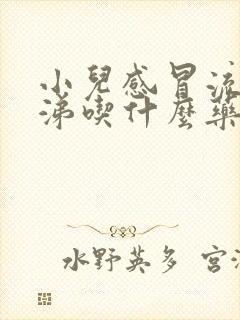 小兒感冒流
涕喫什麼藥
水野英多 宮